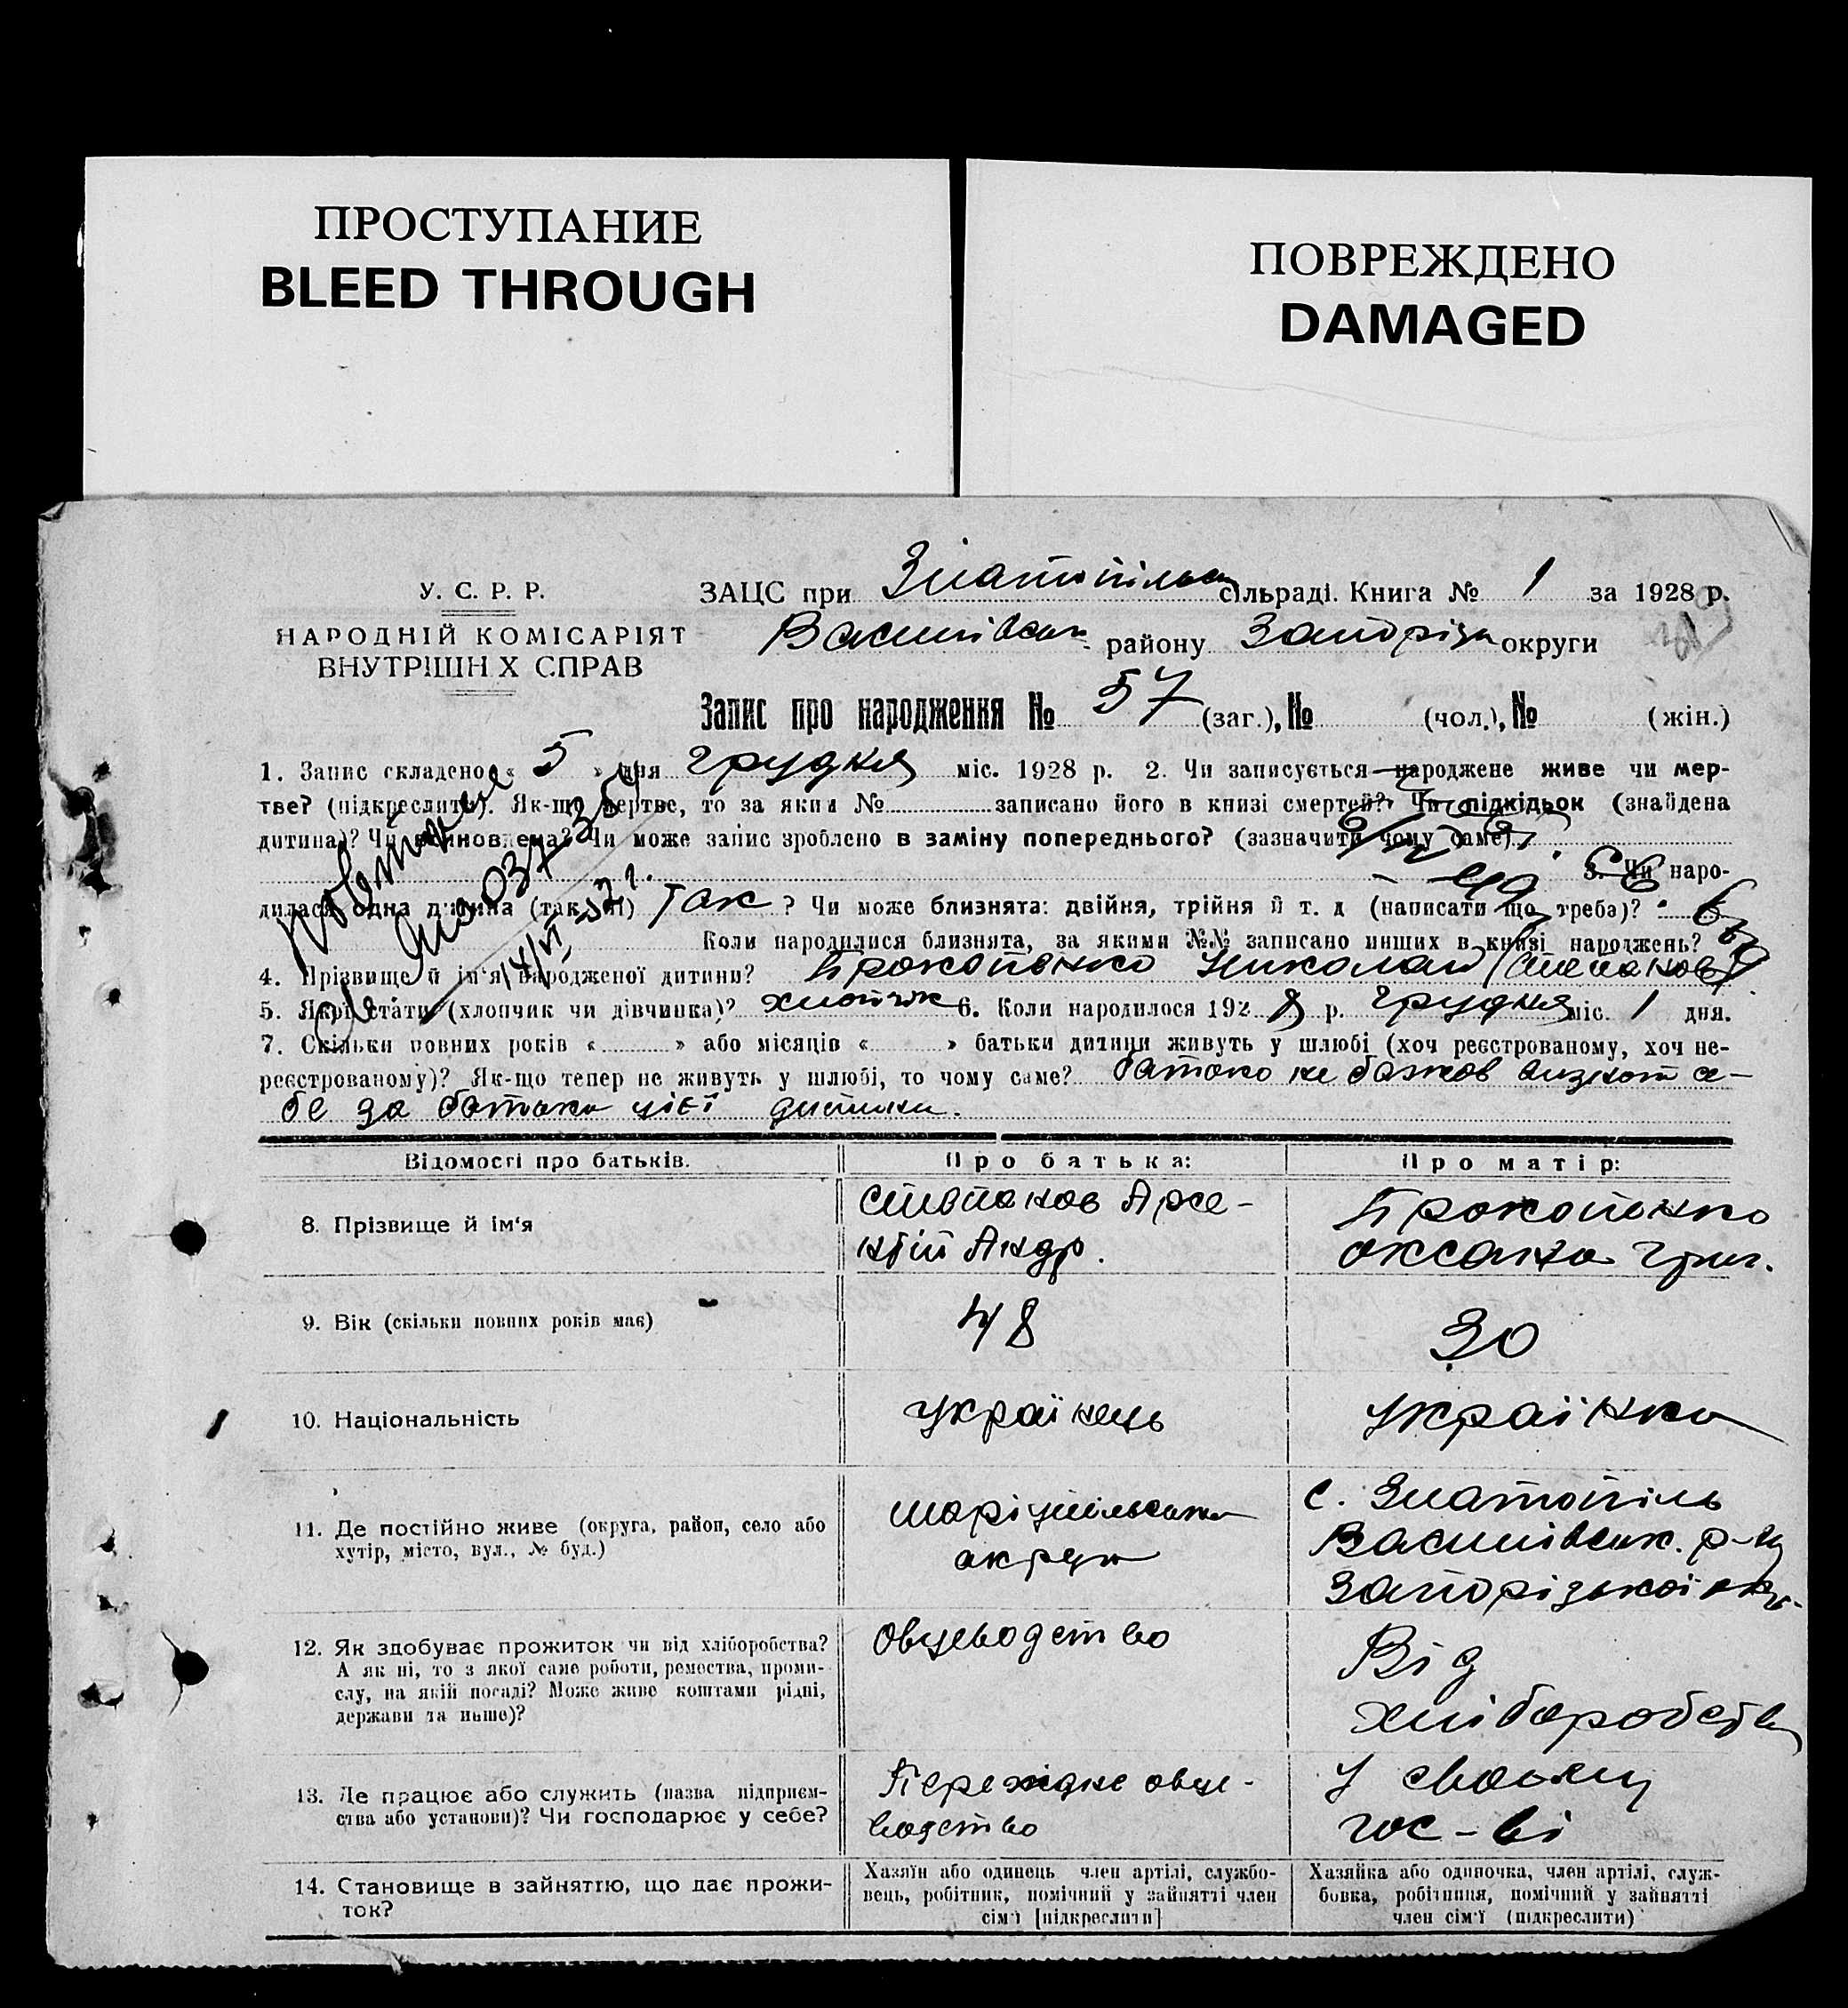 ПРОСТУПАНИЕ
BLEED THROUGH
ПОВРЕЖДЕНО
DAMAGED
У. С. Р. Р.
НАРОДНІЙ КОМІСАРІЯТ
ВНУТРІШН Х СПРАВ
ЗАЦС при Златопільск сільраді. Книга № 1 за 1928 р.
Василівськ району Запоріз округи
Запис про народження № 57 (заг.), № (чол.), № (жін.)
1. Запис складено « 5 » дня грудня міс. 1928 р. 2. Чи записується народжене живе чи мер-
тве? (підкреслити). Як-що мертве, то за яким № записано його в книзі смертей? Чи підкідьок (знайдена
дитина)? Чи всиновлена? Чи може запис зроблено в заміну попереднього? (зазначити чому саме)
3. Чи наро-
дилася одна дитина (так, ні) Так ? Чи може близнята: двійня, трійня й т. д (написати що треба)?
Коли народилися близнята, за якими №№ записано инших в книзі народжень?
4. Прізвище й ім'я народженої дитини? Прокопенко Николай (Степанов)
5. Якої стати (хлопчик чи дівчинка)? хлопчик 6. Коли народилося 1928 р. грудня міс. 1 дня.
7. Скільки повних років « » або місяців « » батьки дитини живуть у шлюбі (хоч реєстрованому, хоч не-
реєстрованому)? Як-що тепер не живуть у шлюбі, то чому саме? батько не бажав визнат се-
бе за батька цієї дитини.
Повторне
14/VI-52 г.
Відомості про батьків. Про батька: Про матір:
8. Прізвище й ім'я
Степанов Арсе-
ній Андр.
Прокопенко
Оксана Григ.
9. Вік (скільки повних років має) 48 30
10. Національність українець українка
11. Де постійно живе (округа, район, село або
хутір, місто, вул., № буд.)
Маріупільська
округа
с. Златопіль
Василівськ. р-ну
Запорізької окр.
12. Як здобуває прожиток чи від хліборобства?
А як ні, то з якої саме роботи, ремества, проми-
слу, на якій посаді? Може живе коштами рідні,
держави та инше)?
Овцеводство
Від
хліборобства
13. Де працює або служить (назва підприєм-
ства або установи)? Чи господарює у себе?
овце-
водство
У своему
гос-ві
14. Становище в зайняттю, що дає прожи-
ток?
Хазяїн або одинець член артілі, службо-
вець, робітник, помічний у зайнятті член
сім'ї [підкреслити]
Хазяйка або одиночка, член артілі, служ-
бовка, робітниця, помічний у зайнятті
член сім'ї (підкреслити)